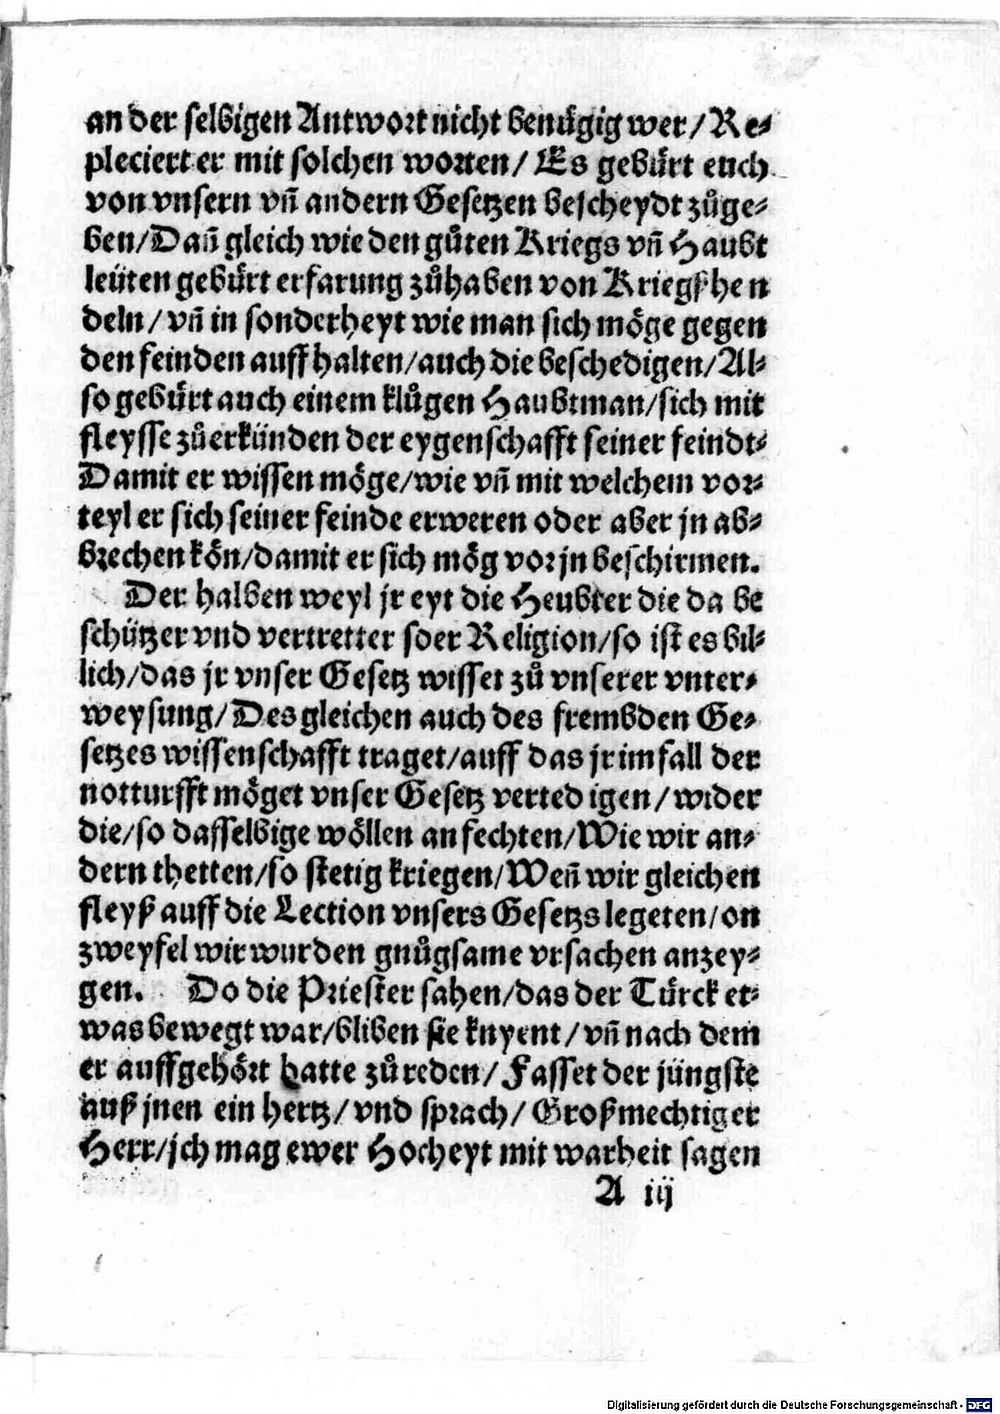 an der selbigen Antwort nicht benügig wer/ Re⸗
pleciert er mit solchen worten/ Es gebürt euch
von vnsern vn̄ andern Gesetzen bescheydt zůge⸗
ben/Dan̄ gleich wie den gůten Kriegs vn̄ Haubt
leüten gebürt erfarung zůhaben von Kriegßhen
deln/ vn̄ in sonderheyt wie man sich möge gegen
den feinden auff halten/auch die beschedigen/Al⸗
so gebürt auch einem klůgen Haubtman/sich mit
fleysse zůerkünden der eygenschafft seiner feindt⸗
Damit er wissen möge/wie vn̄ mit welchem vor⸗
teyl er sich seiner feinde erweren oder aber jn ab⸗
brechen kön/damit er sich mög vor jn beschirmen.
Der halben weyl jr eyt die Heubter die da be
schützer vnd vertretter sder Religion/so ist es bil⸗
lich/das jr vnser Gesetz wisset zů vnserer vnter⸗
weysung/Des gleichen auch des frembden Ge⸗
setzes wissenschafft traget/auff das jr im fall der
notturfft möget vnser Gesetz verted igen/ wider
die/so dasselbige wöllen an fechten/Wie wir an⸗
dern thetten/so stetig kriegen/Wen̄ wir gleichen
fleyß auff die Lection vnsers Gesetzs legeten/on
zweyfel wir wurden gnůgsame vrsachen anzey⸗
gen. Do die Priester sahen/das der Türck et⸗
was bewegt war/bliben sie knyent/ vn̄ nach dem
er auffgehört hatte zů reden/ Fasset der jüngste
auß jnen ein hertz/ vnd sprach/ Großmechtiger
Herr/jch mag ewer Hocheyt mit warheit sagen
A iij
Digitalisierung gefördert durch die Deutsche Forschungsgemeinschaft - DFG